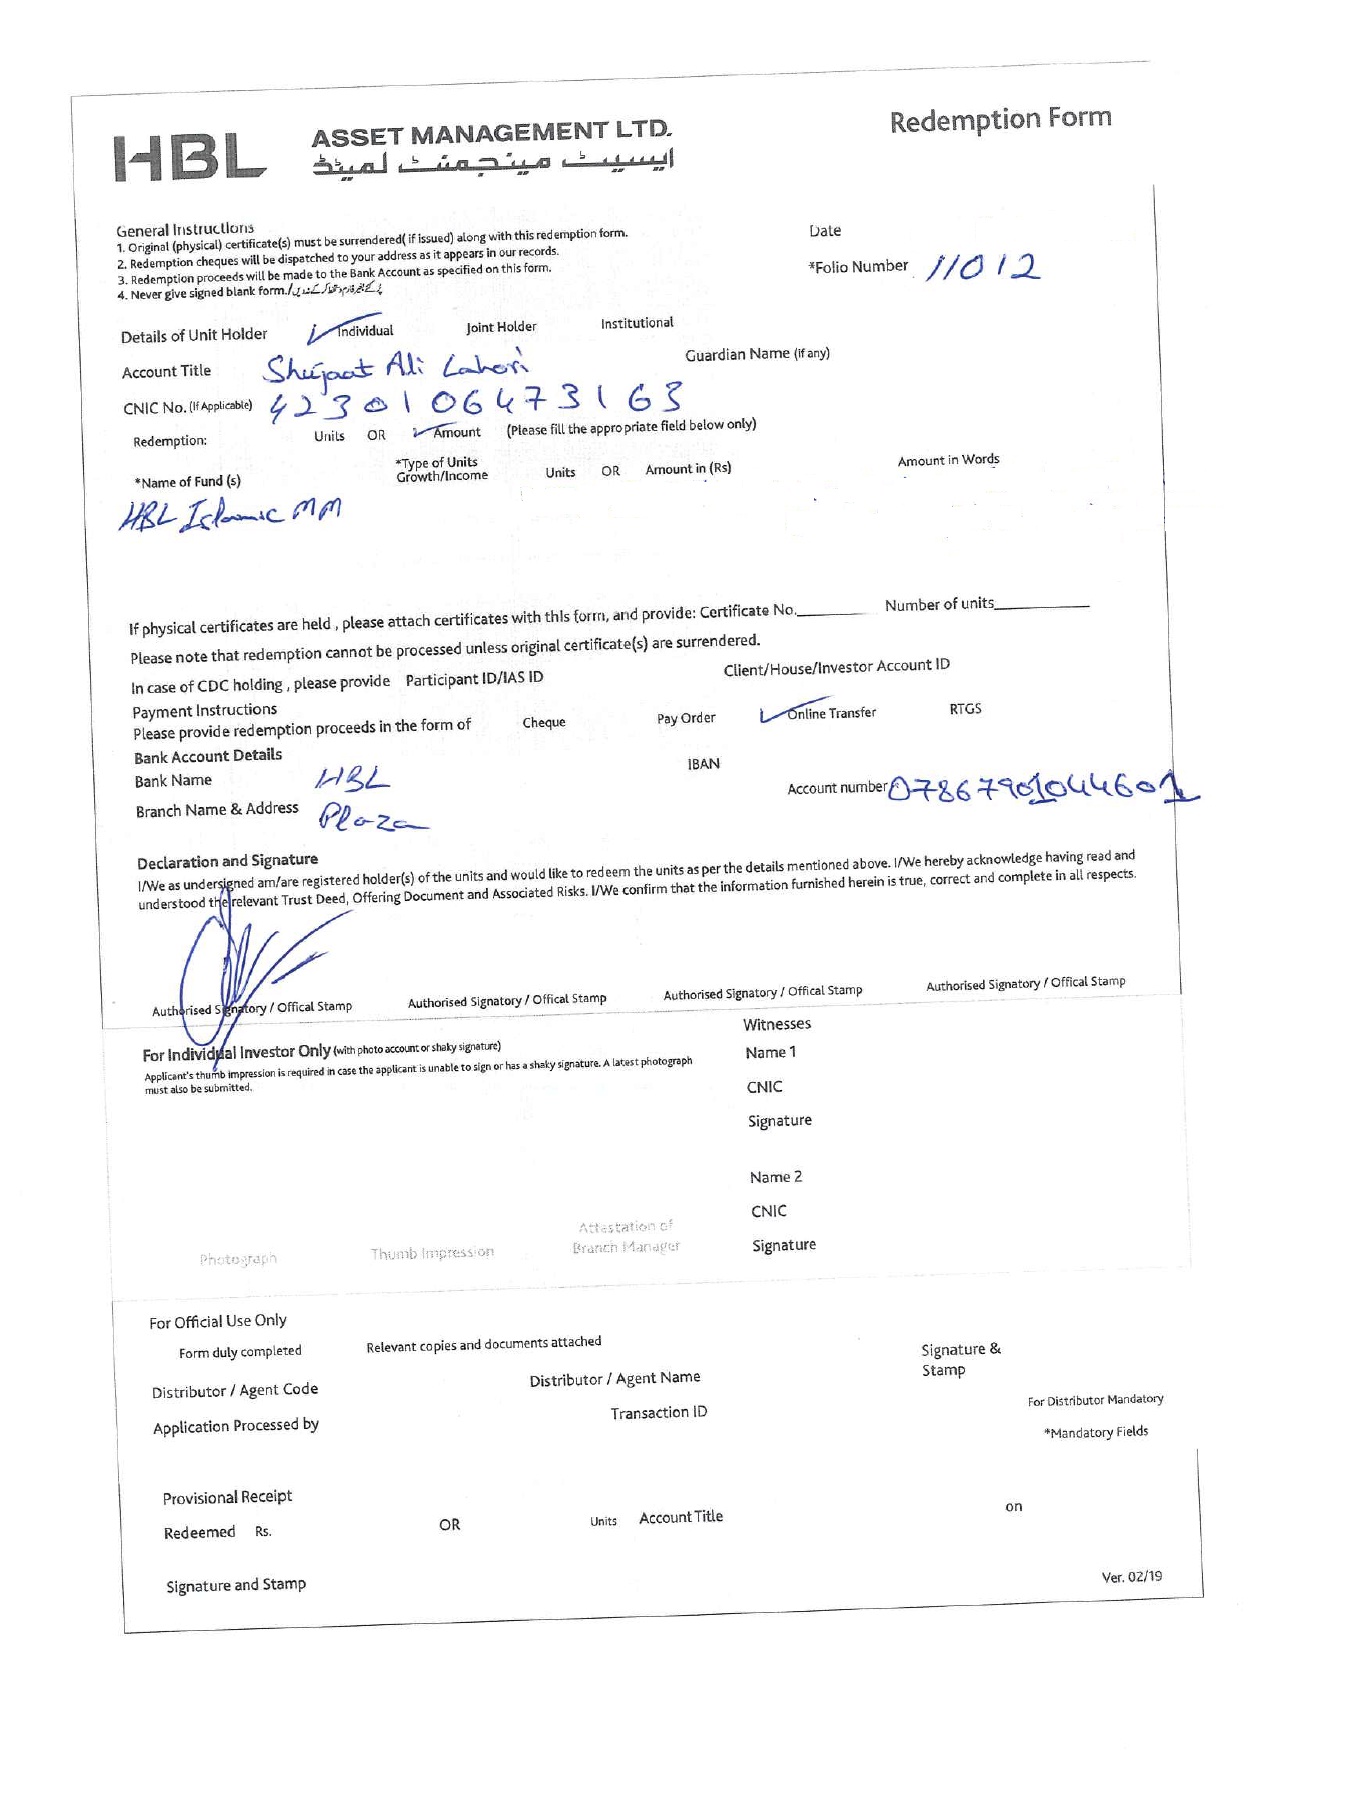 Redemption Form
HBL ASSET MANAGEMENT LTD.
ایسیٹ مینجمنٹ لمیٹڈ
General Instructions
1. Original (physical) certificate(s) must be surrendered( if issued) along with this redemption form.
2. Redemption cheques will be dispatched to your address as it appears in our records.
3. Redemption proceeds will be made to the Bank Account as specified on this form.
4. Never give signed blank form./
Date
*Folio Number 11012
Details of Unit Holder Individual Joint Holder Institutional
Account Title Shujaat Ali Lahori Guardian Name (if any)
CNIC No. (If Applicable) 4230106473163
Redemption: Units OR Amount (Please fill the appropriate field below only)
*Name of Fund (s) *Type of Units Growth/Income Units OR Amount in (Rs) Amount in Words
HBL Islamic MM
If physical certificates are held , please attach certificates with this form, and provide: Certificate No.________ Number of units____________
Please note that redemption cannot be processed unless original certificate(s) are surrendered.
In case of CDC holding , please provide Participant ID/IAS ID Client/House/Investor Account ID
Payment Instructions
Please provide redemption proceeds in the form of Cheque Pay Order Online Transfer RTGS
Bank Account Details
Bank Name HBL IBAN
Account number 07867901044601
Branch Name & Address Plaza
Declaration and Signature
I/We as undersigned am/are registered holder(s) of the units and would like to redeem the units as per the details mentioned above. I/We hereby acknowledge having read and
understood the relevant Trust Deed, Offering Document and Associated Risks. I/We confirm that the information furnished herein is true, correct and complete in all respects.
Authorised Signatory / Offical Stamp Authorised Signatory / Offical Stamp Authorised Signatory / Offical Stamp Authorised Signatory / Offical Stamp
For Individual Investor Only (with photo account or shaky signature)
Applicant's thumb impression is required in case the applicant is unable to sign or has a shaky signature. A latest photograph
must also be submitted.
Witnesses
Name 1
CNIC
Signature
Name 2
CNIC
Signature
Photograph Thumb Impression Attestation of Branch Manager
For Official Use Only
Form duly completed Relevant copies and documents attached Signature & Stamp
Distributor / Agent Code Distributor / Agent Name
For Distributor Mandatory
Application Processed by Transaction ID
*Mandatory Fields
Provisional Receipt
Redeemed Rs. OR Units Account Title on
Signature and Stamp
Ver. 02/19